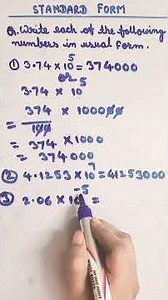 STANDARD FORM
Q. Write each of the following
numbers in usual form.
① 3.74 × 10⁵ = 374000
or
3.74 × 10⁵
374 × 100000
= 100
= 374 × 1000
= 374000
② 4.1253 × 10⁷ = 41253000
③ 2.06 × 10⁻⁵ =